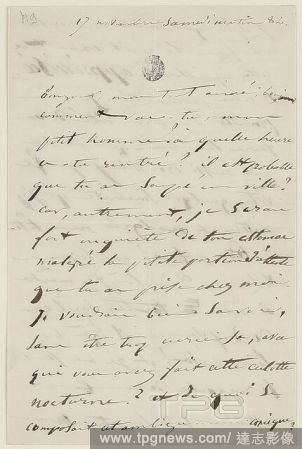 17 novembre samedi matin
Bonjour mon tout aimé,
comment vas-tu, mon
petit homme à quelle heure
es-tu rentré? il est probable
que tu as soupé en ville?
car, autrement, je serais
fort inquiète de ton estomac
malgré la petite portion
que tu as prise chez moi.
Je voudrais bien savoir,
sans être trop curieuse, avec
qui vous avez fait cette
nocturne? et de quoi se
composait cet ambigu comique?
TPG
www.tpgnews.com/達志影像